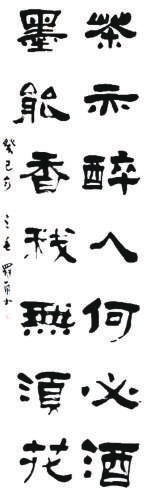 茶亦醉人何必酒
墨能香我無須花
癸巳